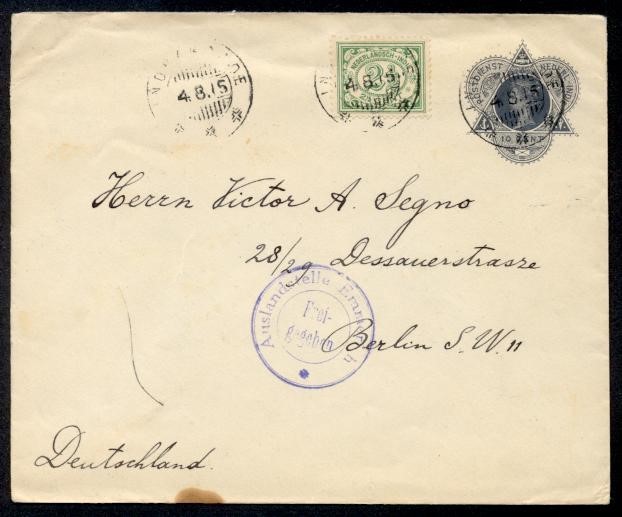 4.8.15
NEDERLANDSCH-INDIË
2½
4.8.15
POSTDIENST NEDERL. INDIE
4.8.15
10 CENT
Herrn Victor A. Segno
28/29 Dessauerstrasze
Berlin S.W. 11
Auslandstelle Emmerich
Frei-
gegeben
Deutschland.